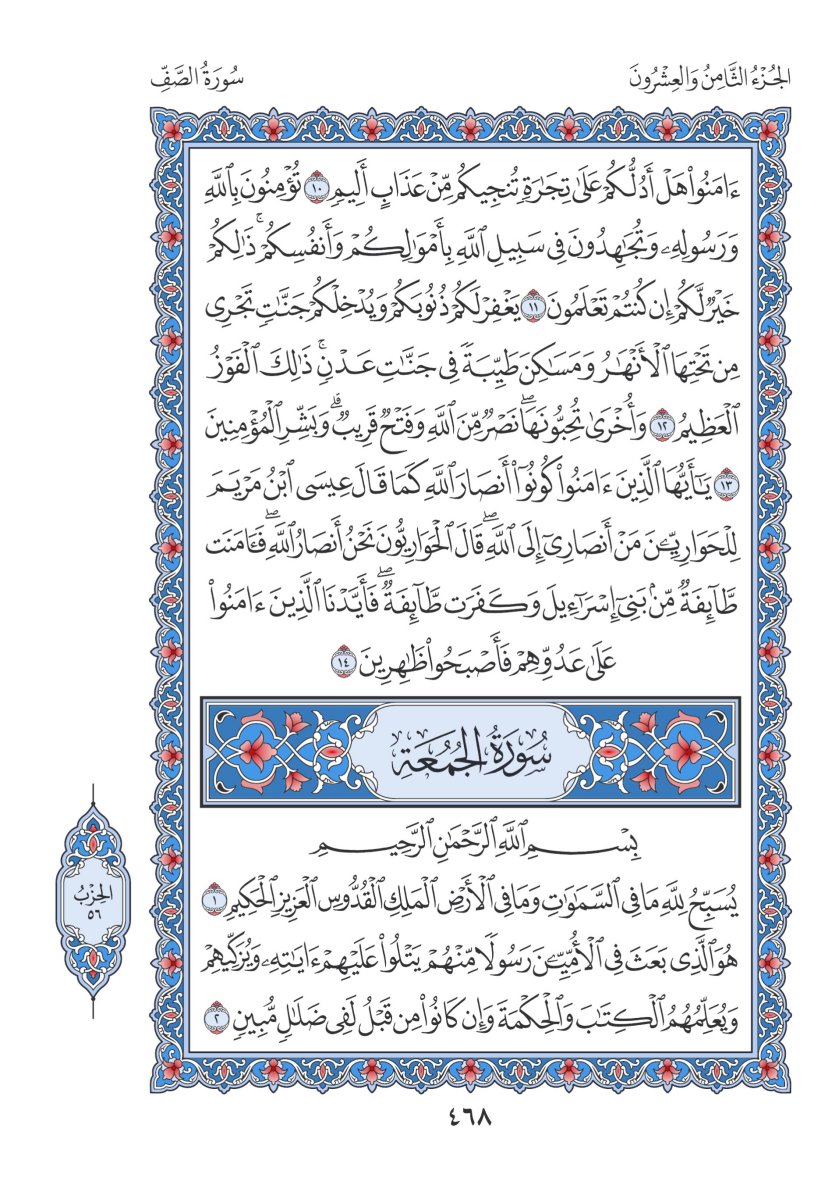 الجُزْءُ الثَّامِنُ وَالعِشْرُونَ
سُورَةُ الصَّفِّ
ءَامَنُواْ هَلْ أَدُلُّكُمْ عَلَىٰ تِجَٰرَةٖ تُنجِيكُم مِّنْ عَذَابٍ أَلِيمٖ ١٠ تُؤْمِنُونَ بِٱللَّهِ
وَرَسُولِهِۦ وَتُجَٰهِدُونَ فِي سَبِيلِ ٱللَّهِ بِأَمْوَٰلِكُمْ وَأَنفُسِكُمْۚ ذَٰلِكُمْ
خَيْرٞ لَّكُمْ إِن كُنتُمْ تَعْلَمُونَ ١١ يَغْفِرْ لَكُمْ ذُنُوبَكُمْ وَيُدْخِلْكُمْ جَنَّٰتٖ تَجْرِي
مِن تَحْتِهَا ٱلْأَنْهَٰرُ وَمَسَٰكِنَ طَيِّبَةٗ فِي جَنَّٰتِ عَدْنٖۚ ذَٰلِكَ ٱلْفَوْزُ
ٱلْعَظِيمُ ١٢ وَأُخْرَىٰ تُحِبُّونَهَاۖ نَصْرٞ مِّنَ ٱللَّهِ وَفَتْحٞ قَرِيبٞۗ وَبَشِّرِ ٱلْمُؤْمِنِينَ
١٣ يَٰٓأَيُّهَا ٱلَّذِينَ ءَامَنُواْ كُونُوٓاْ أَنصَارَ ٱللَّهِ كَمَا قَالَ عِيسَى ٱبْنُ مَرْيَمَ
لِلْحَوَارِيِّـۧنَ مَنْ أَنصَارِيٓ إِلَى ٱللَّهِۖ قَالَ ٱلْحَوَارِيُّونَ نَحْنُ أَنصَارُ ٱللَّهِۖ فَـَٔامَنَت
طَّآئِفَةٞ مِّنۢ بَنِيٓ إِسْرَٰٓءِيلَ وَكَفَرَت طَّآئِفَةٞۖ فَأَيَّدْنَا ٱلَّذِينَ ءَامَنُواْ
عَلَىٰ عَدُوِّهِمْ فَأَصْبَحُواْ ظَٰهِرِينَ ١٤
سُورَةُ الجُمُعَةِ
بِسْمِ ٱللَّهِ ٱلرَّحْمَٰنِ ٱلرَّحِيمِ
يُسَبِّحُ لِلَّهِ مَا فِي ٱلسَّمَٰوَٰتِ وَمَا فِي ٱلْأَرْضِ ٱلْمَلِكِ ٱلْقُدُّوسِ ٱلْعَزِيزِ ٱلْحَكِيمِ ١
هُوَ ٱلَّذِي بَعَثَ فِي ٱلْأُمِّيِّـۧنَ رَسُولٗا مِّنْهُمْ يَتْلُواْ عَلَيْهِمْ ءَايَٰتِهِۦ وَيُزَكِّيهِمْ
وَيُعَلِّمُهُمُ ٱلْكِتَٰبَ وَٱلْحِكْمَةَ وَإِن كَانُواْ مِن قَبْلُ لَفِي ضَلَٰلٖ مُّبِينٖ ٢
الحِزْبُ
٥٦
٤٦٨